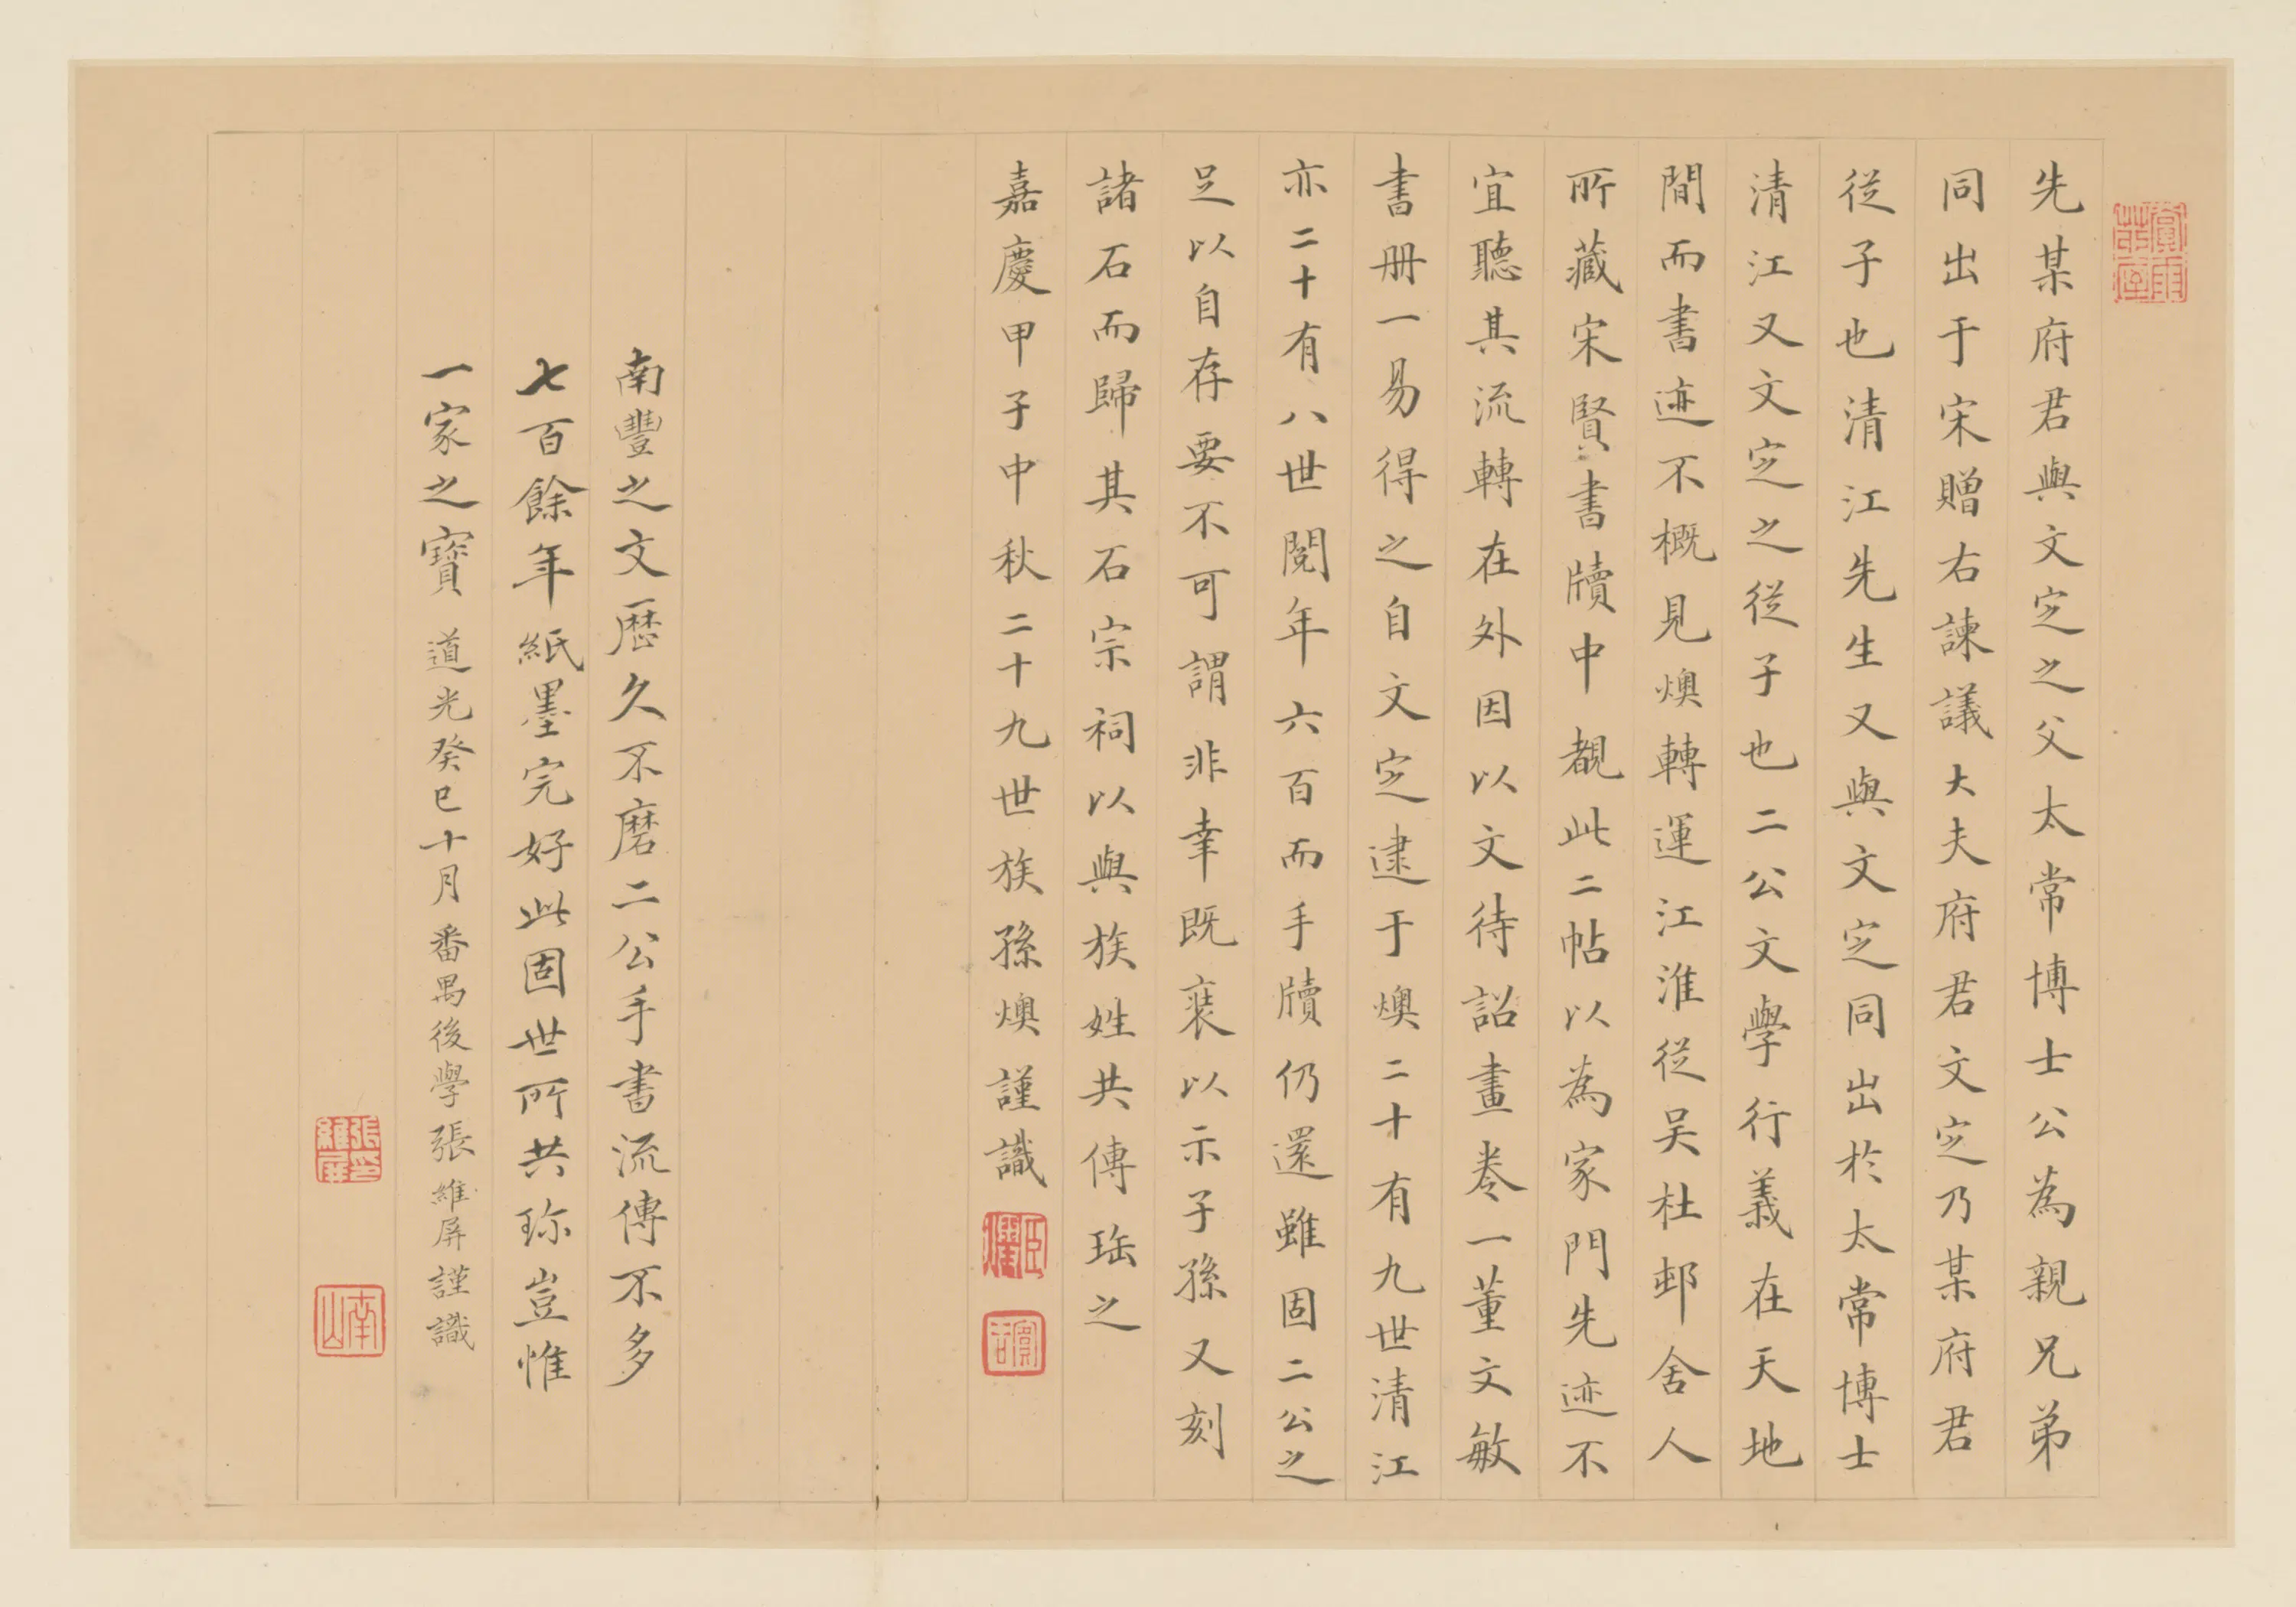 先某府君與文定之父太常博士公為親兄弟
同出于宋贈右諫議大夫府君文定乃某府君
從子也清江先生又與文定同出於太常博士
清江又文定之從子也二公文學行義在天地
間而書迹不概見燠轉運江淮從吴杜邨舍人
所藏宋賢書牘中覩此二帖以為家門先迹不
宜聽其流轉在外因以文待詔畫卷一董文敏
書册一易得之自文定逮于燠二十有九世清江
亦二十有八世閱年六百而手牘仍還雖固二公之
足以自存要不可謂非幸既裝以示子孫又刻
諸石而歸其石宗祠以與族姓共傳珤之
嘉慶甲子中秋二十九世族孫燠謹識
南豐之文歷久不磨二公手書流傳不多
七百餘年紙墨完好此固世所共珎豈惟
一家之寶 道光癸巳十月番禺後學張維屏謹識
張維屏印
南山